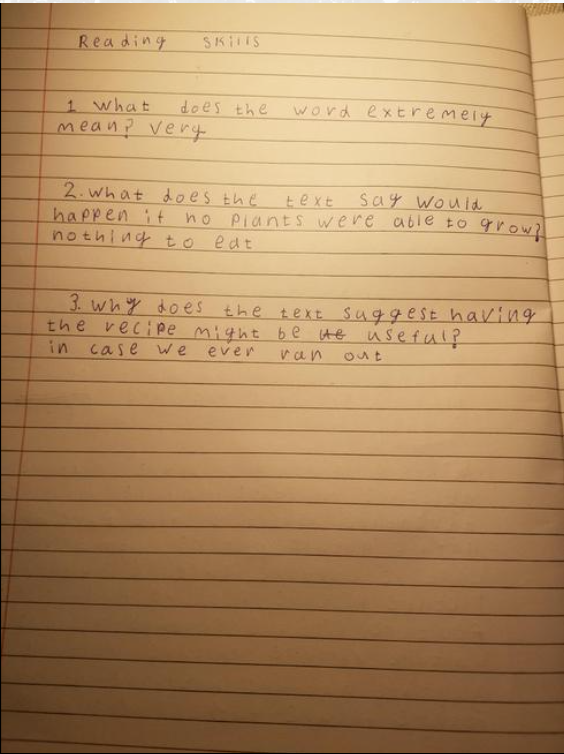 Reading skills
1 What does the word extremely
mean? Very
2. What does the text say would
happen if no plants were able to grow?
nothing to eat
3. Why does the text suggest having
the recipe might be useful?
in case we ever ran out